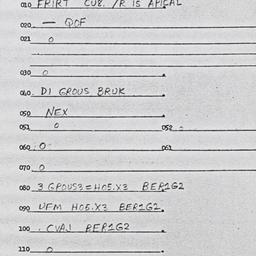 010 FRIRT CU8. /R IS APICAL
020 — QOF
021 0
030 0
040 DI GROUS BRUK
050 NEX
051 0 052
060 0 061
070 0
080 3 GPOUS3=H05.X3 BER1G2
090 UFM H05.X3 BER1G2.
100 . CVAJ BER1G2
110 0